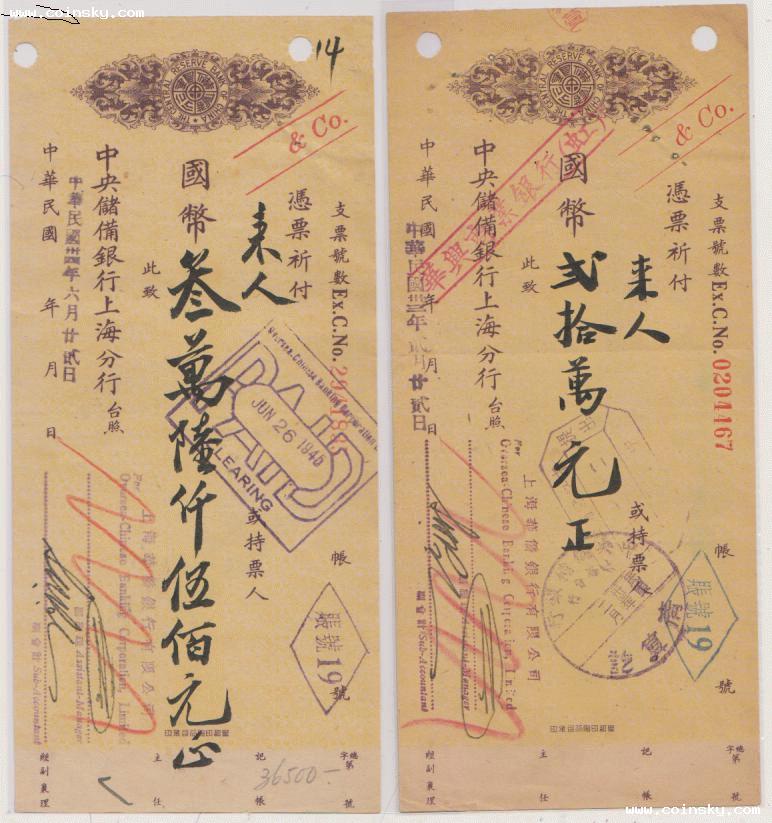 www.coinsky.com
14
THE CENTRAL RESERVE BANK OF CHINA
& Co.
支票號數 Ex.C.No.
帳 號
憑票祈付
來人
或持票人
國幣 叁萬陸仟伍佰元正
此致
中央儲備銀行上海分行 台照
中華民國卅四年六月廿貳日
中華民國 年 月 日
Oversea-Chinese Banking Corporation
PAID
JUN 26 1945
CLEARING
賬號 19
上海華僑銀行有限公司
For Oversea-Chinese Banking Corporation, Limited
Assistant-Manager
副會計 Sub-Accountant
總字第 號
記帳
主任
經副襄理
36500-
THE CENTRAL RESERVE BANK OF CHINA
& Co.
支票號數 Ex.C.No. 0204167
帳 號
憑票祈付
來人
或持票人
國幣 弍拾萬元正
此致
中央儲備銀行上海分行 台照
中華民國卅三年貳月廿貳日
中華民國 年 月 日
華興商業銀行(虹)
賬號 19
上海華僑銀行有限公司
For Oversea-Chinese Banking Corporation, Limited
Assistant-Manager
副會計 Sub-Accountant
總字第 號
記帳
主任
經副襄理
www.coinsky.com